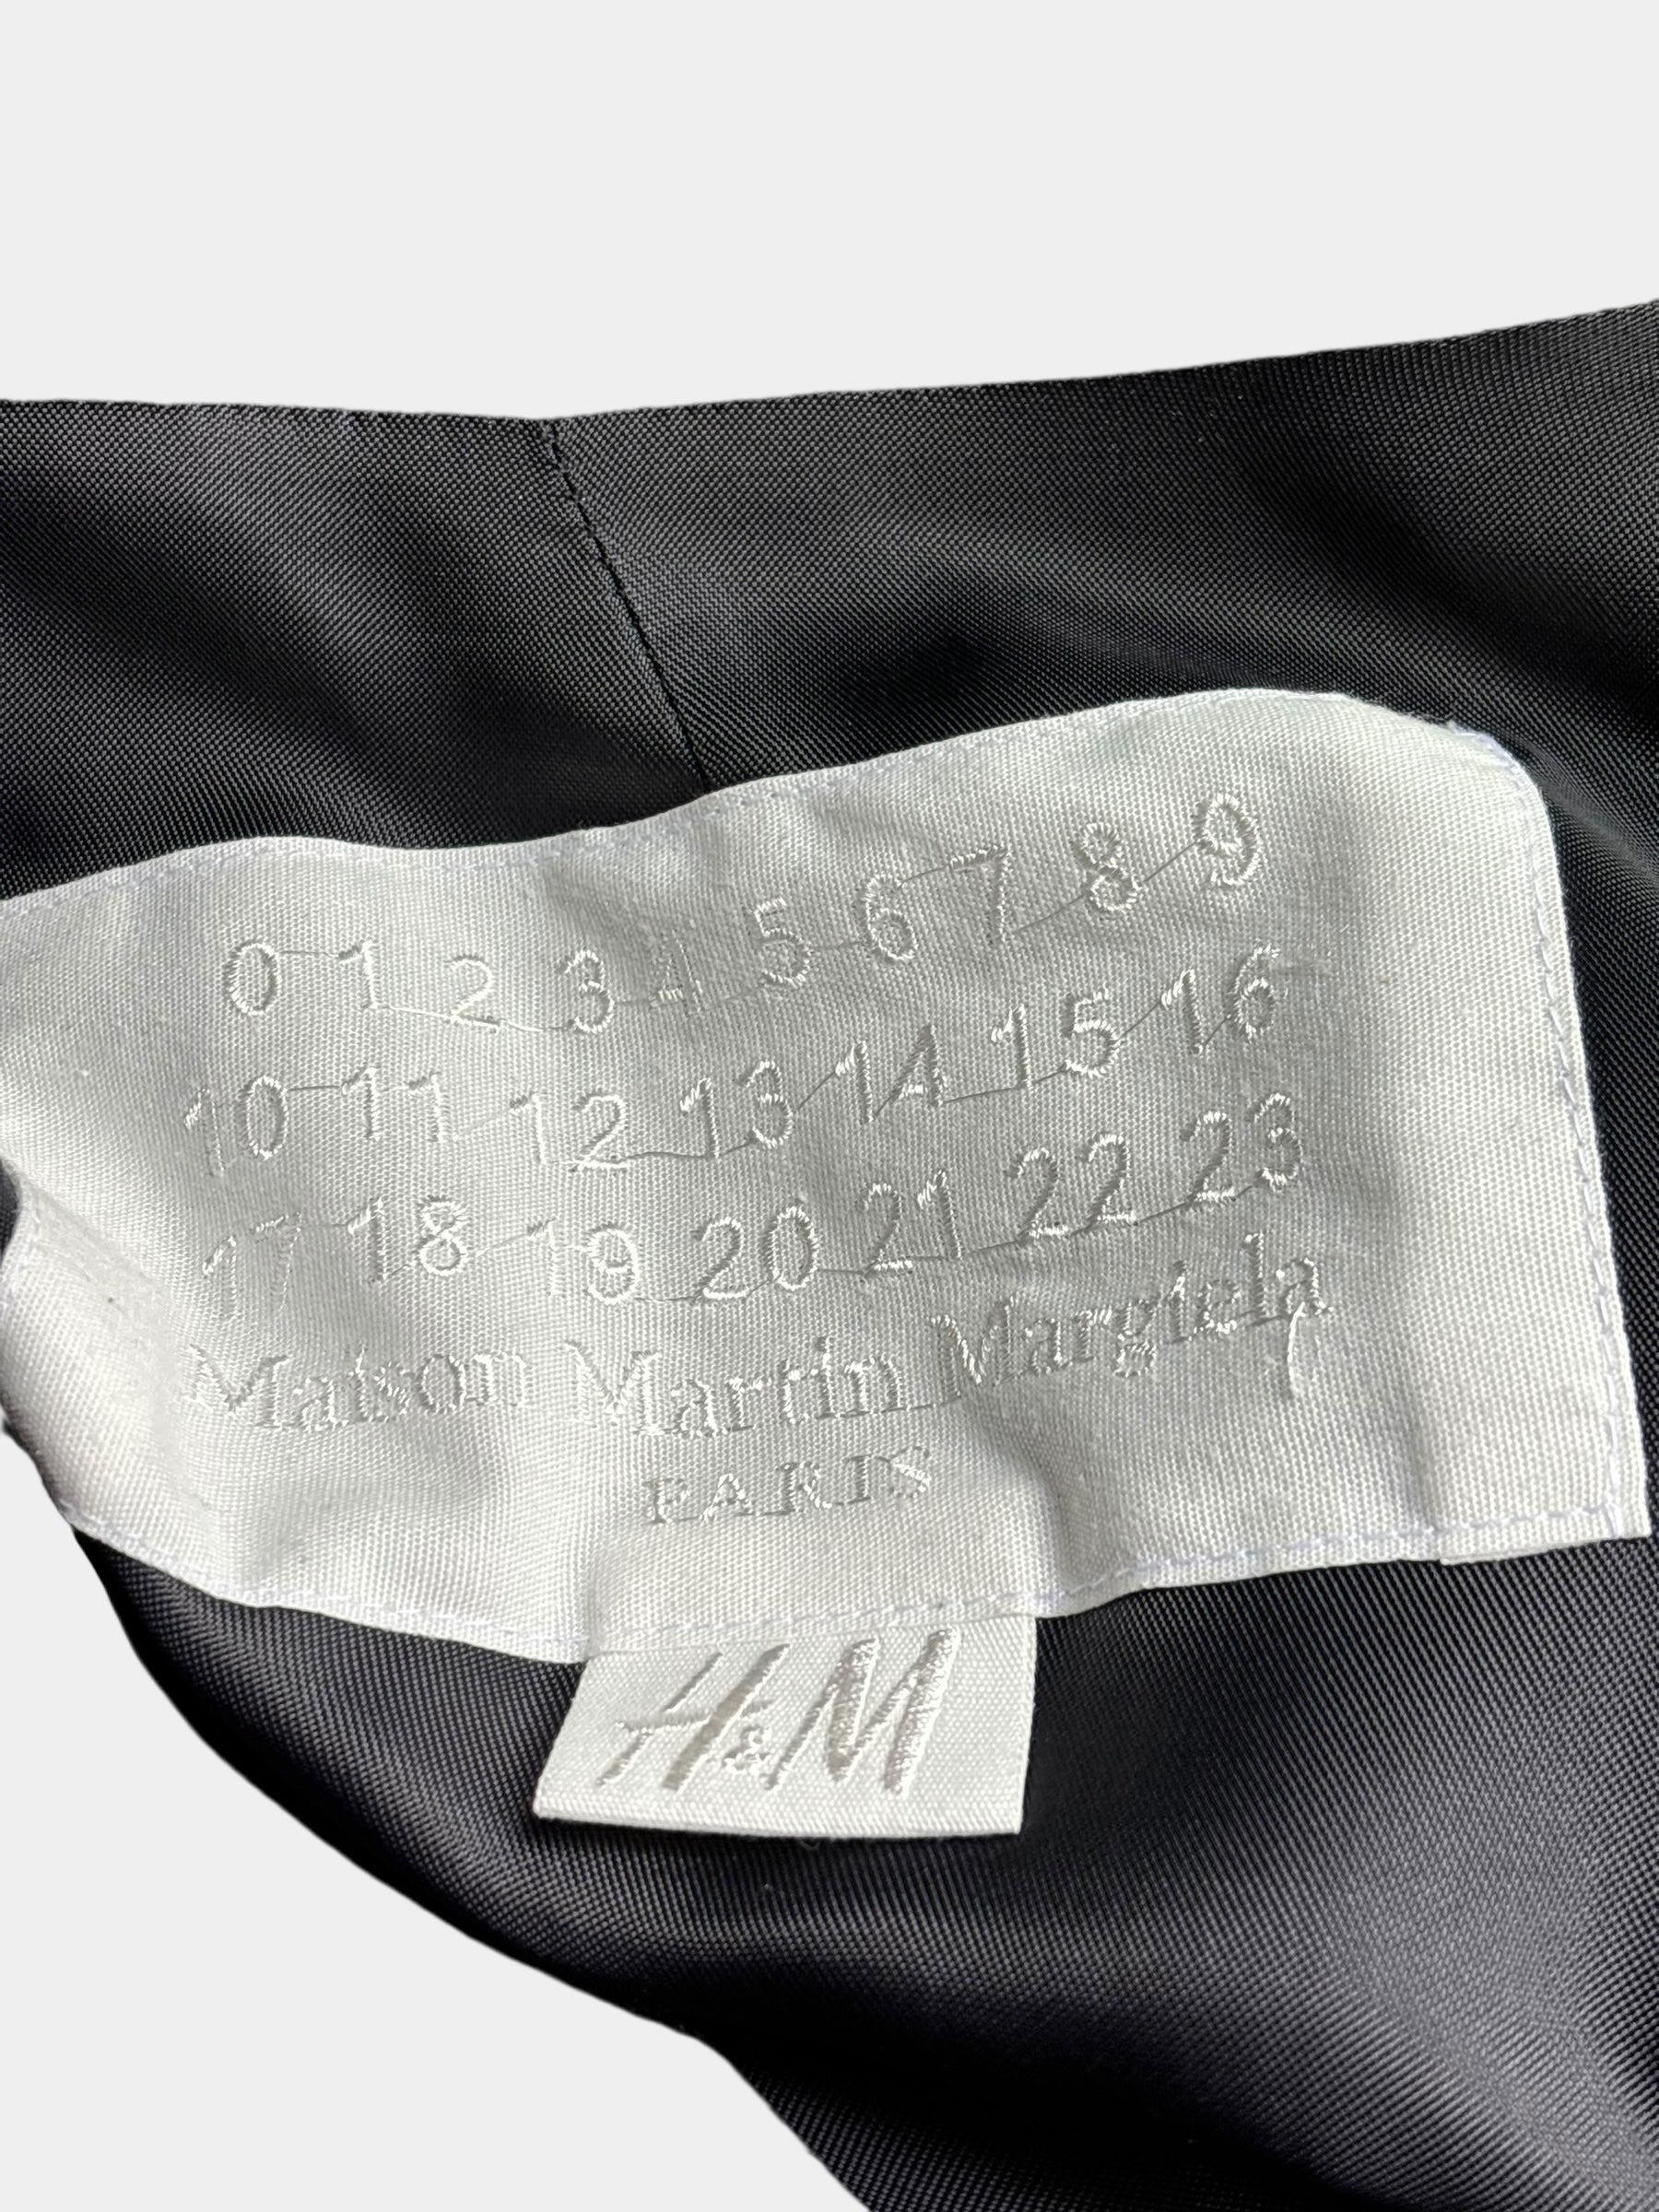 0 1 2 3 4 5 6 7 8 9
10 11 12 13 14 15 16
17 18 19 20 21 22 23
Maison Martin Margiela
PARIS
H&M